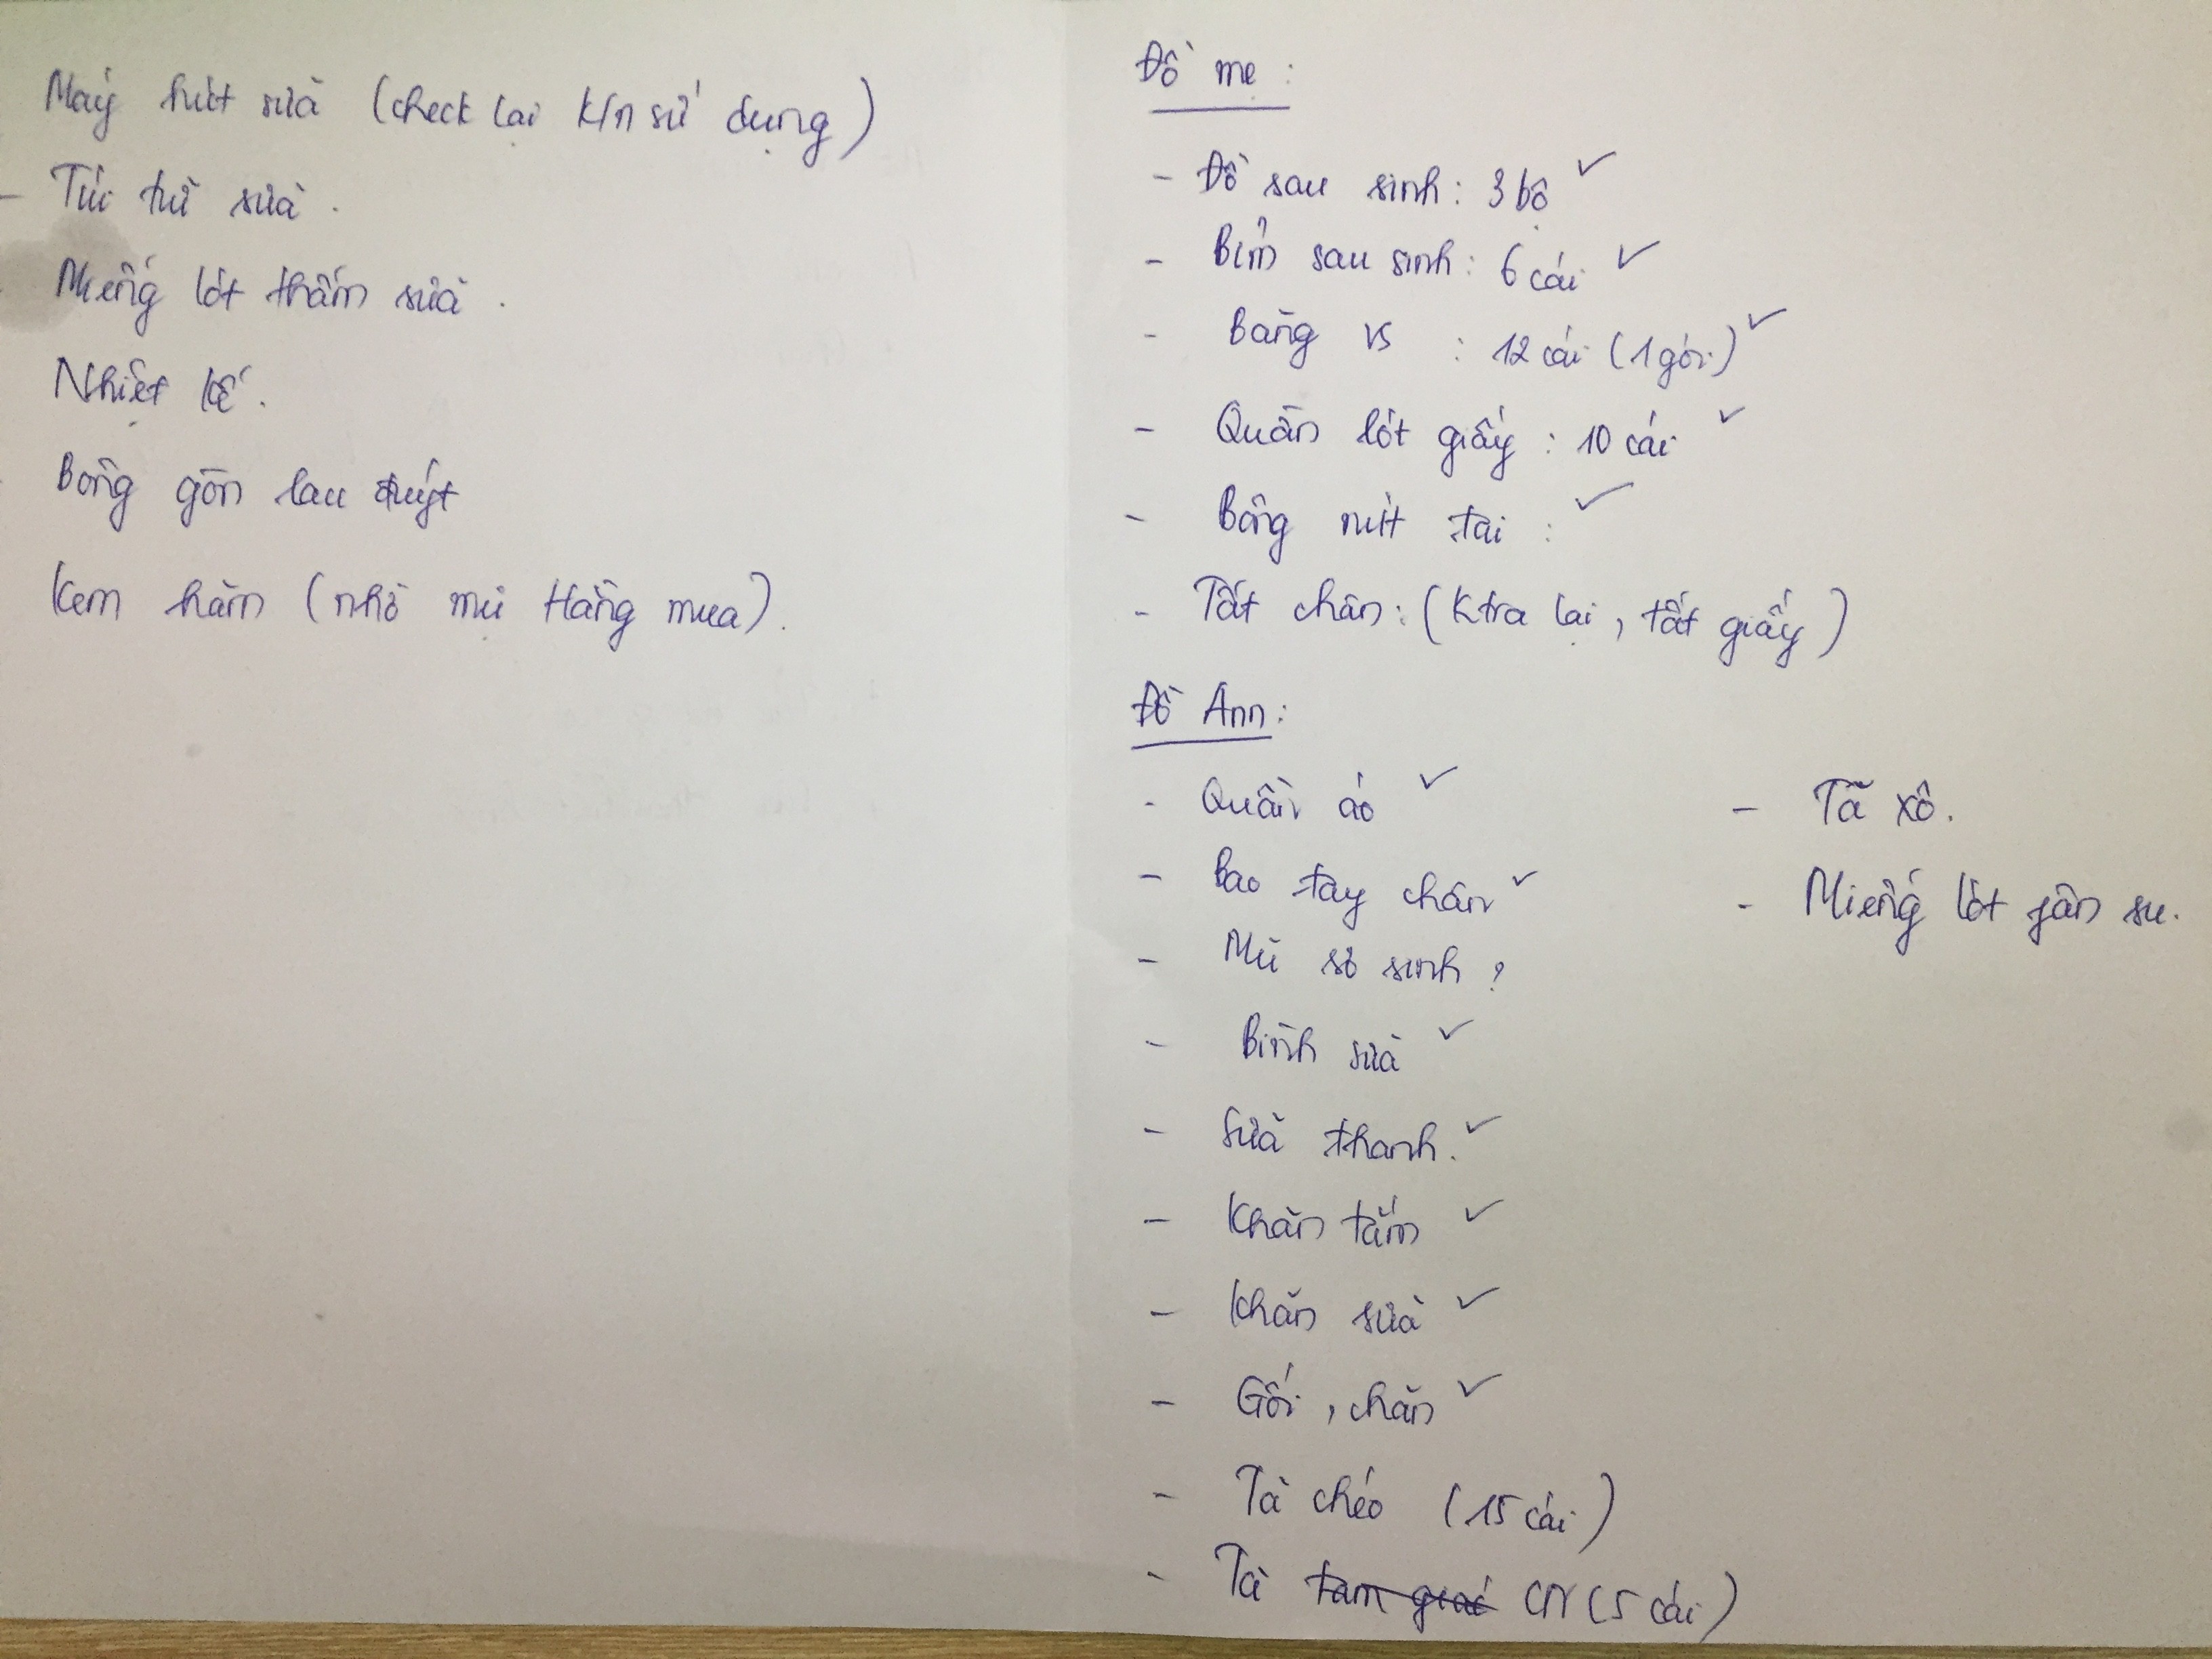 Máy hút sữa (check lại k/n sử dụng)
- Túi trữ sữa.
Miếng lót thấm sữa.
Nhiệt kế.
Bông gòn lau
Kem hăm (nhờ mự Hằng mua).
Đồ mẹ:
- Đồ sau sinh: 3 bộ ✓
- Bỉm sau sinh: 6 cái ✓
- Băng vs : 12 cái (1 gói) ✓
- Quần lót giấy : 10 cái ✓
- Bông nút tai : ✓
- Tất chân: (ktra lại, tất giấy)
Đồ Ann:
- Quần áo ✓
- Bao tay chân ✓
- Mũ sơ sinh ?
- Bình sữa ✓
- Sữa thanh. ✓
- Khăn tắm ✓
- Khăn sữa ✓
- Gối, chăn ✓
- Tã chéo (15 cái)
- Tã tam giác CN (5 cái)
- Tã xô.
- Miếng lót phân su.